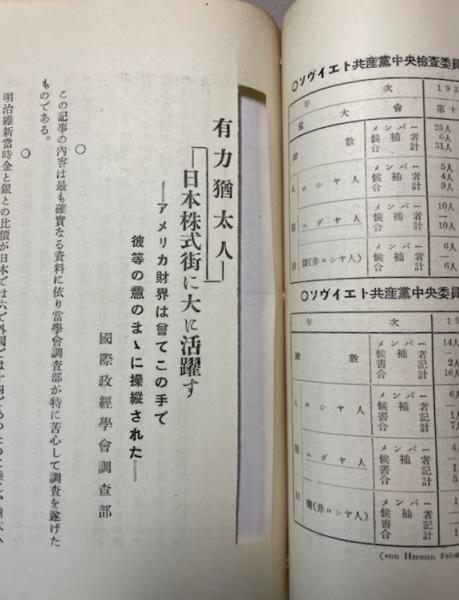 有力猶太人
日本株式街に大に活躍す
―アメリカ財界は曾てこの手で
彼等の意のまゝに操縱された―
國際政經學會調査部
○
この記事の内容は最も確實なる資料に依り當學會調査部が特に苦心して調査を遂げた
ものである。
○
明治維新當時金と銀との比價が日本では六で外國では十四であつたのに
○ソヴイエト共産黨中央檢査委員
年次 193
黨大會 第十
總數 メンバー 25人
候補者 6人
合計 31人
人種別
ロシヤ人 メンバー 5人
候補者 4人
合計 9人
ユダヤ人 メンバー 10人
候補者 ―
合計 10人
(非ロシヤ人) メンバー 6人
候補者 ―
合計 6人
○ソヴイエト共産黨中央委員
年次 1
總數 メンバー 14人
候補者 ―
書記 2人
合計 16人
ロシヤ人 メンバー 6人
候補者 ―
書記 1人
合計 7人
ユダヤ人 メンバー 4人
候補者 ―
書記 1
合計 5
(非ロシヤ人) メンバー
候補者
書記
合計
(von Herman Fehst